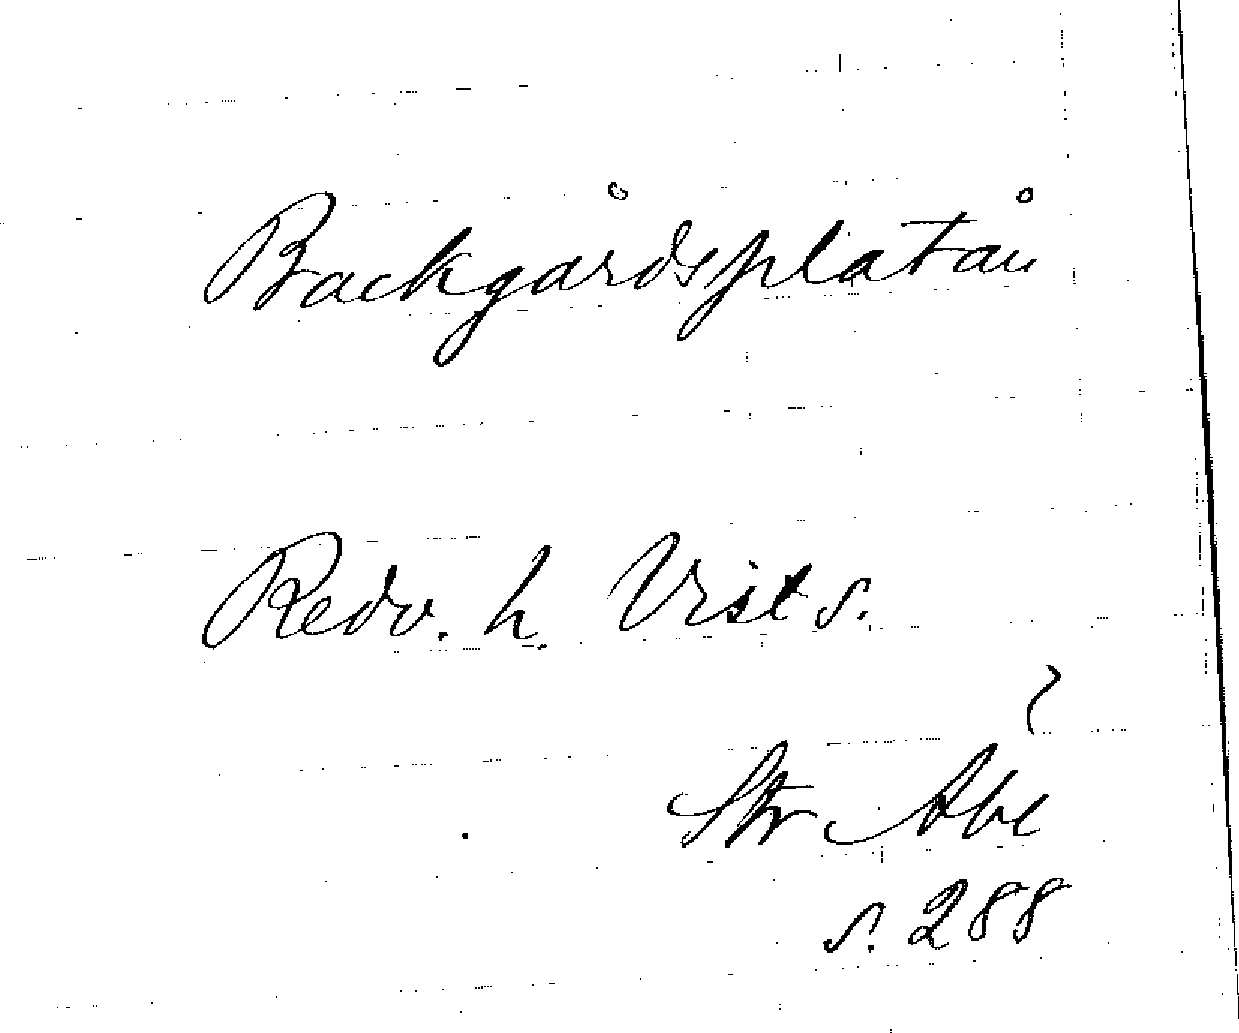 Backgårdsplatån
Redv. h. Vists s.
Str Abe
s. 288